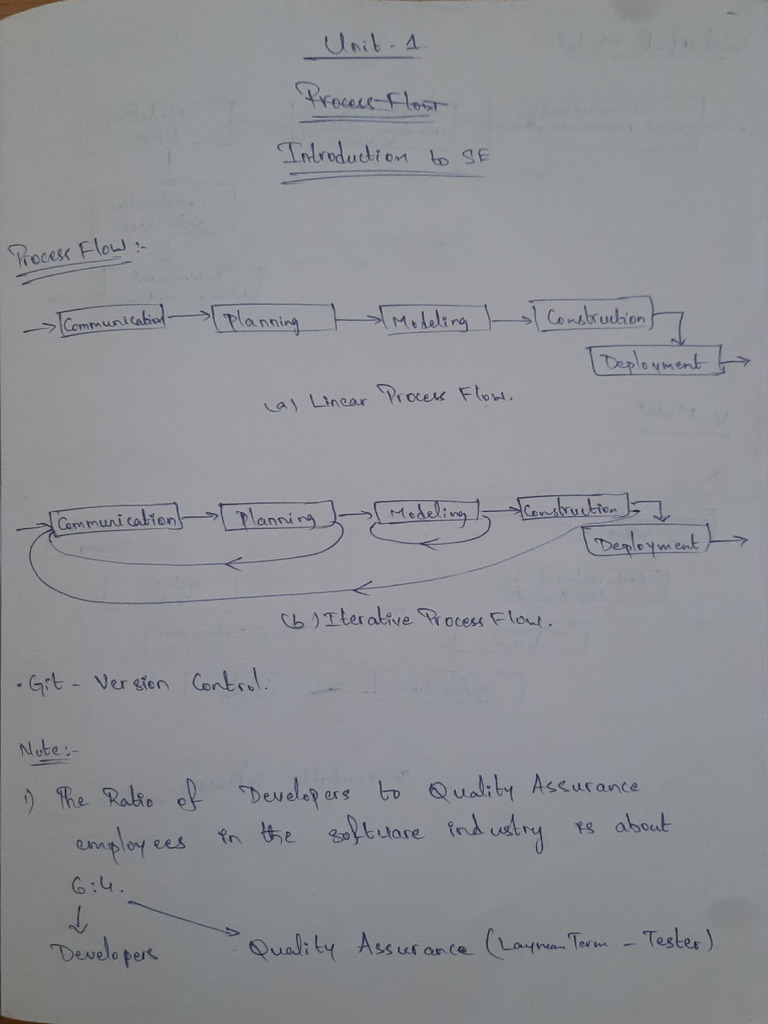 Unit - 1
Process Flow
Introduction to SE
Process Flow :-
Communication Planning Modeling Construction
Deployment
(a) Linear Process Flow.
Communication Planning Modeling Construction
Deployment
(b) Iterative Process Flow.
· Git - Version Control.
Note:-
1) The Ratio of Developers to Quality Assurance
employees in the software industry is about
6:4.
Developers Quality Assurance (Layman Term - Tester)